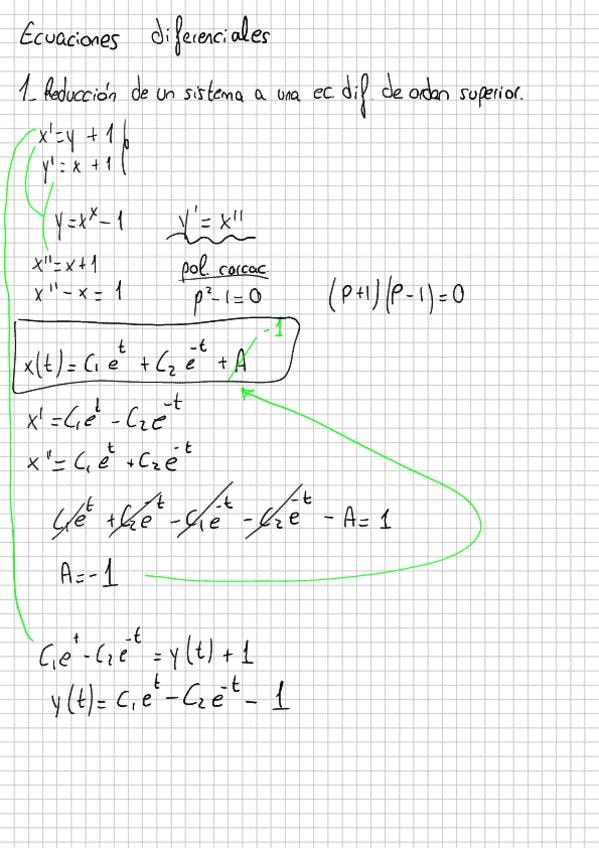 Ecuaciones diferenciales
1_ Reducción de un sistema a una ec. dif. de orden superior.
x' = y + 1
y' = x + 1
y = x^x - 1 y' = x''
x'' = x + 1 pol. carcac
x'' - x = 1 p² - 1 = 0 (p+1)(p-1) = 0
-1
x(t) = C₁e^t + C₂e^-t + A
x' = C₁e^t - C₂e^-t
x'' = C₁e^t + C₂e^-t
C₁e^t + C₂e^-t - C₁e^-t - C₂e^-t - A = 1
A = -1
C₁e^t - C₂e^-t = y(t) + 1
y(t) = C₁e^t - C₂e^-t - 1